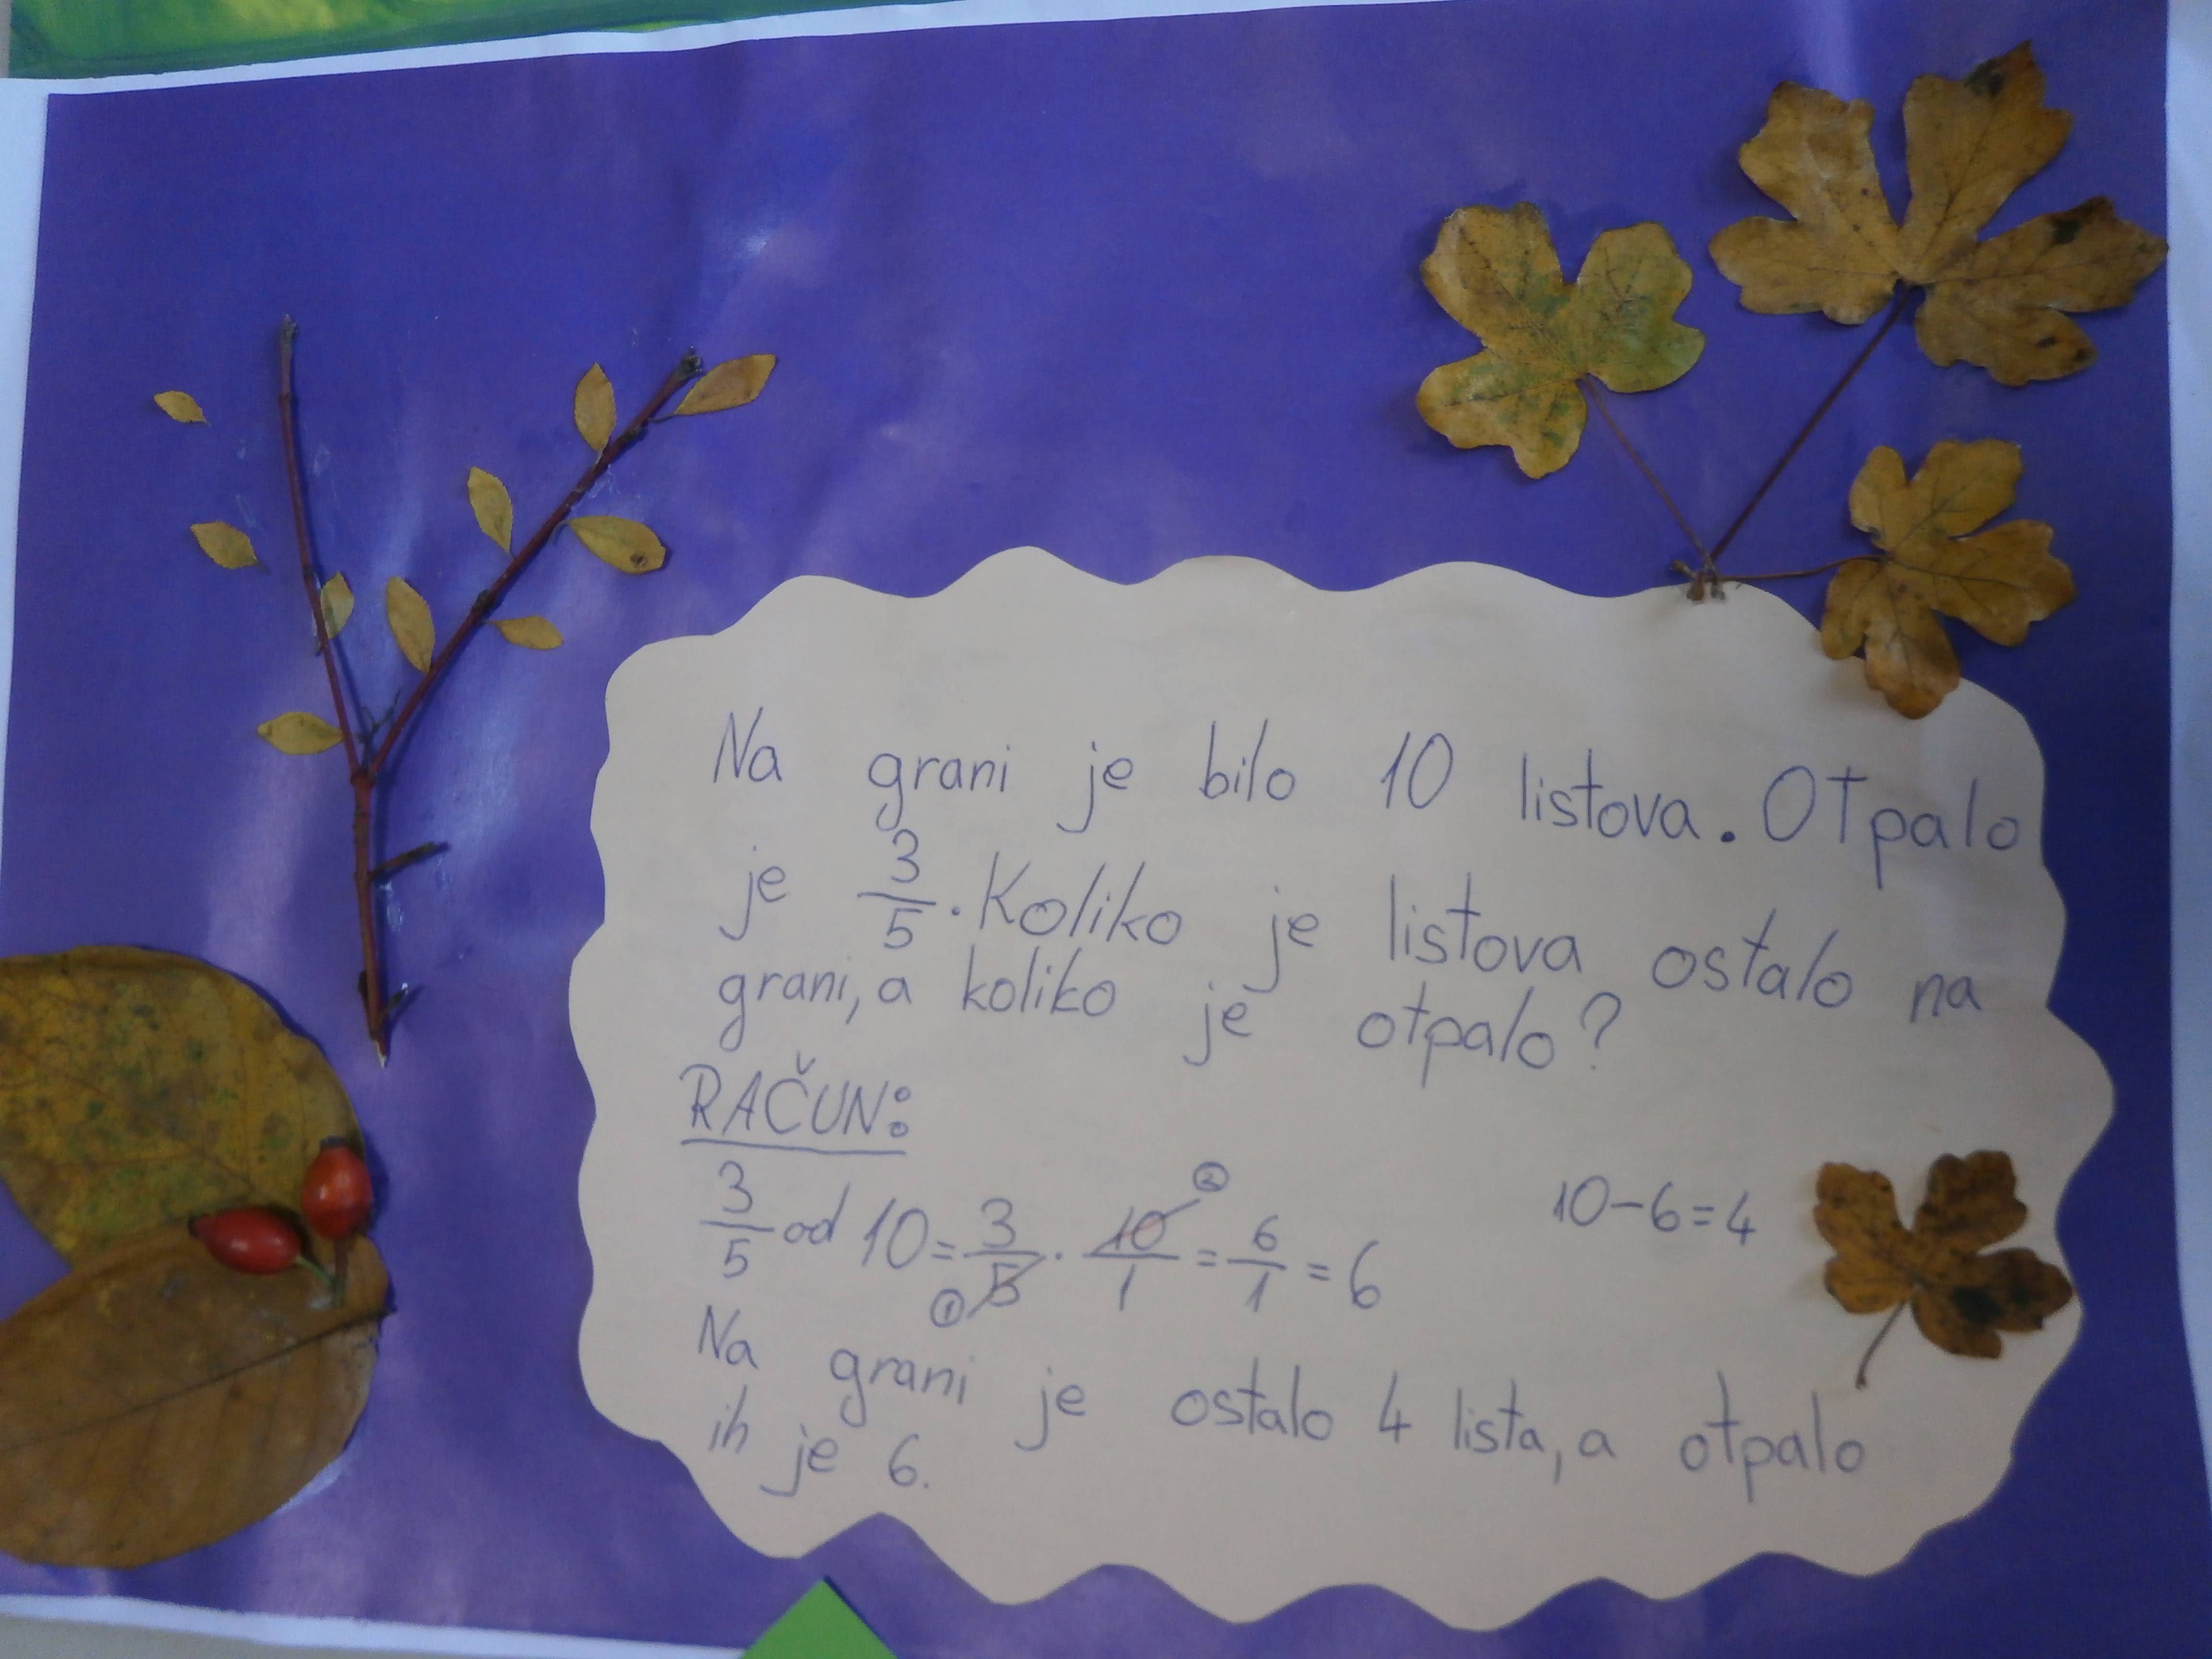 Na grani je bilo 10 listova. Otpalo
je 3/5. Koliko je listova ostalo na
grani, a koliko je otpalo?
RAČUN:
3/5 od 10 = 3/5 ① · 10/1 ② = 6/1 = 6
10-6=4
Na grani je ostalo 4 lista, a otpalo
ih je 6.